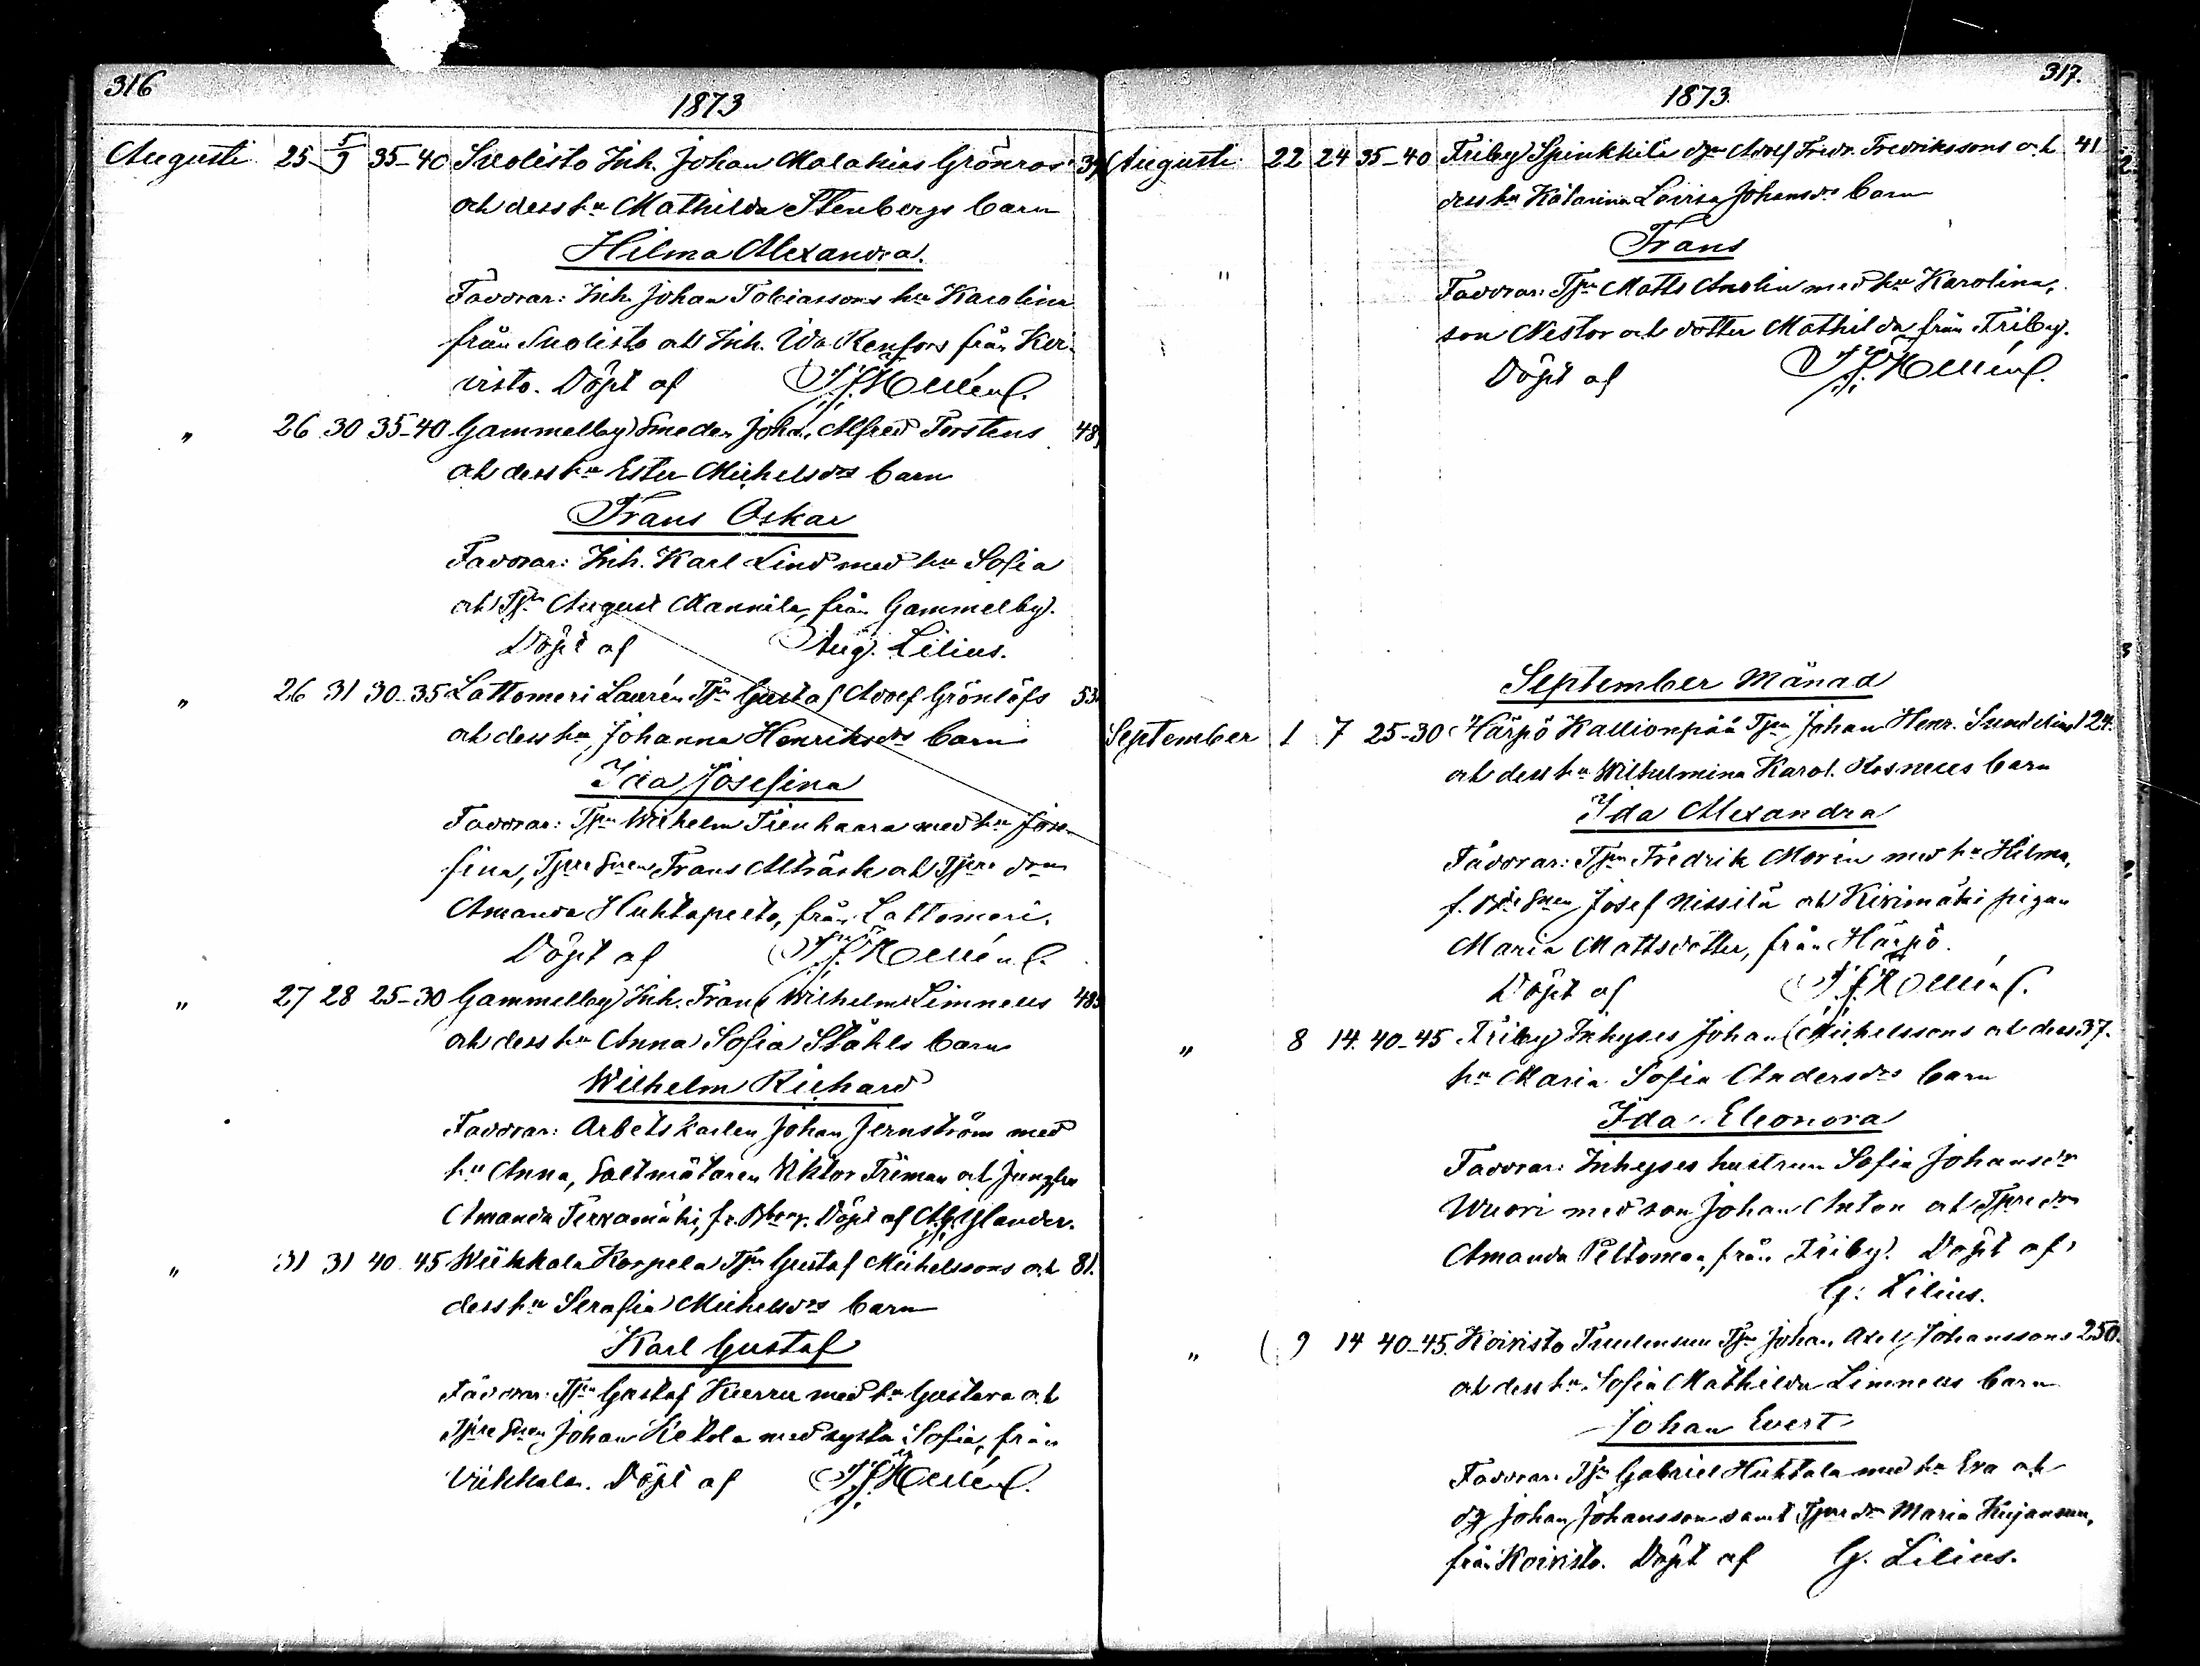 316
1873
Augusti 25 5/9 35-40 Suolisto Inh. Johan Malakias Grönroos 39
och dess hu Mathilda Stenbergs barn
Hilma Alexandra.
Faddrar: Inh. Johan Tobiassons hu Karolina
från Suolisto och Inh. Ida Renfors från Koi-
visto. Döpt af
" 26 30 35-40 Gammelby Smeden Joha. Alfred Forstens 48
och dess hu Ester Michelsdrs barn
Frans Oskar
Faddrar: Inh. Karl Lind med hu Sofia
och Tjn August Mannila, från Gammelby.
Döpt af Aug. Lilius.
" 26 31 30-35 Lattomeri Laurén Tjn Gustaf Adolf Grönlöfs 53
och dess hu Johanna Henriksdrs barn
Ida Josefina
Faddrar: Tjn Wilhelm Tienhaara med hu Jose-
fina, Frans Alträsk och
Amanda från Lattomeri.
Döpt af
" 27 28 25-30 Gammelby Inh. Frans Wilhelm Limneus 48
och dess hu Anna Sofia Ståhls barn
Wilhelm Richard
Faddrar: Arbetskarlen Johan Jernström med
hu Anna, Viktor Friman och Jungfru
Amanda Döpt af
" 31 31 40-45 Wiikkala Korpela Tjn Gustaf Michelssons och 81.
dess hu Serafia Michelsdrs barn
Karl Gustaf
Faddrar: Tjn Gustaf Kuerru med hu Gustava och
Johan Ketola med syster Sofia, från
Viikkala. Döpt af
317.
1873.
Augusti 22 24 35-40 Friby Spinkkila Adolf Fredr. Fredrikssons och 41
dess hu Katarina Lovisa Johansdrs barn
Frans
" Faddrar: Tjn Matts Anolin med hu Karolina,
son Nestor och dotter Mathilda från Friby.
Döpt af
September Månad
September 1 7 25-30 Härpö Kallionpää Tjn Johan Henr. Sundelins 124.
och dess hu Wilhelmina Karol. Rosneus barn
Ida Alexandra
Faddrar: Tjn Fredrik Morin med hu Hilma,
Josef Nissilä och Kivimäki pigan
Maria Mattsdotter, från Härpö.
Döpt af
" 8 14. 40-45 Friby Inhyses Johan Michelssons och dess 37.
hu Maria Sofia Andersdrs barn
Ida Eleonora
Faddrar: Inhyses hustrun Sofia Johansdr
Wuori med son Johan Anton och
Amanda Peltoman, från Friby. Döpt af
G. Lilius.
" 9 14 40-45 Koivisto Tuulensuu Tjn Johan Axel Johanssons 250.
och dess hu Sofia Mathilda Limneus barn
Johan Evert
Faddrar: Tjn Gabriel Huhtala med hu Eva och
Johan Johansson samt Maria Kujansuu,
från Koivisto. Döpt af G. Lilius.